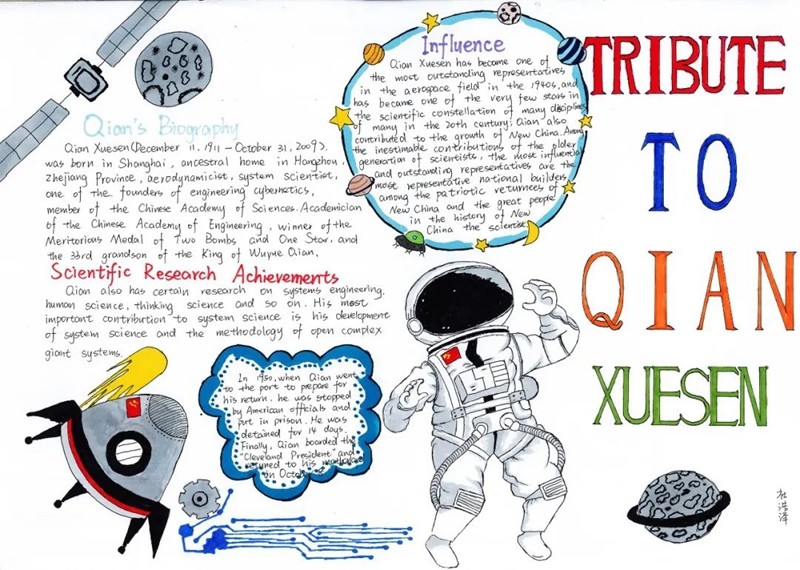 Qian's Biography
Qian Xuesen (December 11, 1911 – October 31, 2009),
was born in Shanghai, ancestral home in Hangzhou,
Zhejiang Province, aerodynamicist, system scientist,
one of the founders of engineering cybernetics,
member of the Chinese Academy of Sciences. Academician
of the Chinese Academy of Engineering, winner of the
Meritorious Medal of Two Bombs and One Star, and
the 33rd grandson of the King of Wuyue Qian.
Scientific Research Achievements
Qian also has certain research on systems engineering,
human science, thinking science and so on. His most
important contribution to system science is his development
of system science and the methodology of open complex
giant systems.
Influence
Qian Xuesen has become one of
the most outstanding representatives
in the aerospace field in the 1940s, and
has became one of the very few stars in
the scientific constellation of many disciplines
of many in the 20th century. Qian also
contributed to the growth of New China. Among
the inestimable contributions of the older
generation of scientists, the most influential
and outstanding representatives are the
most representative national builders
among the patriotic returnees of
New China and the great people
in the history of New
China the scientist
In 1950, when Qian went
to the port to prepare for
his return. he was stopped
by American officials and
put in prison. He was
detained for 14 days.
Finally, Qian boarded the
"Cleveland President" and
returned to his
on
TRIBUTE
TO
QIAN
XUESEN
杜浩泽